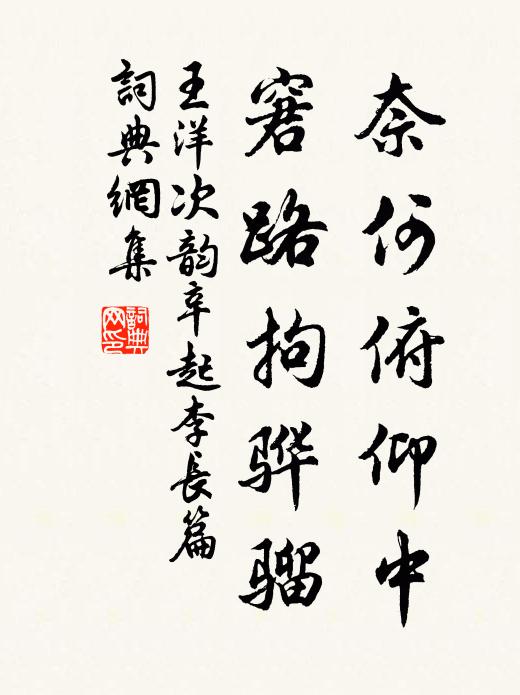 奈何俯仰中
窘路拘骅骝
王洋次韵辛起李长篇
詞典網集
詞典网印